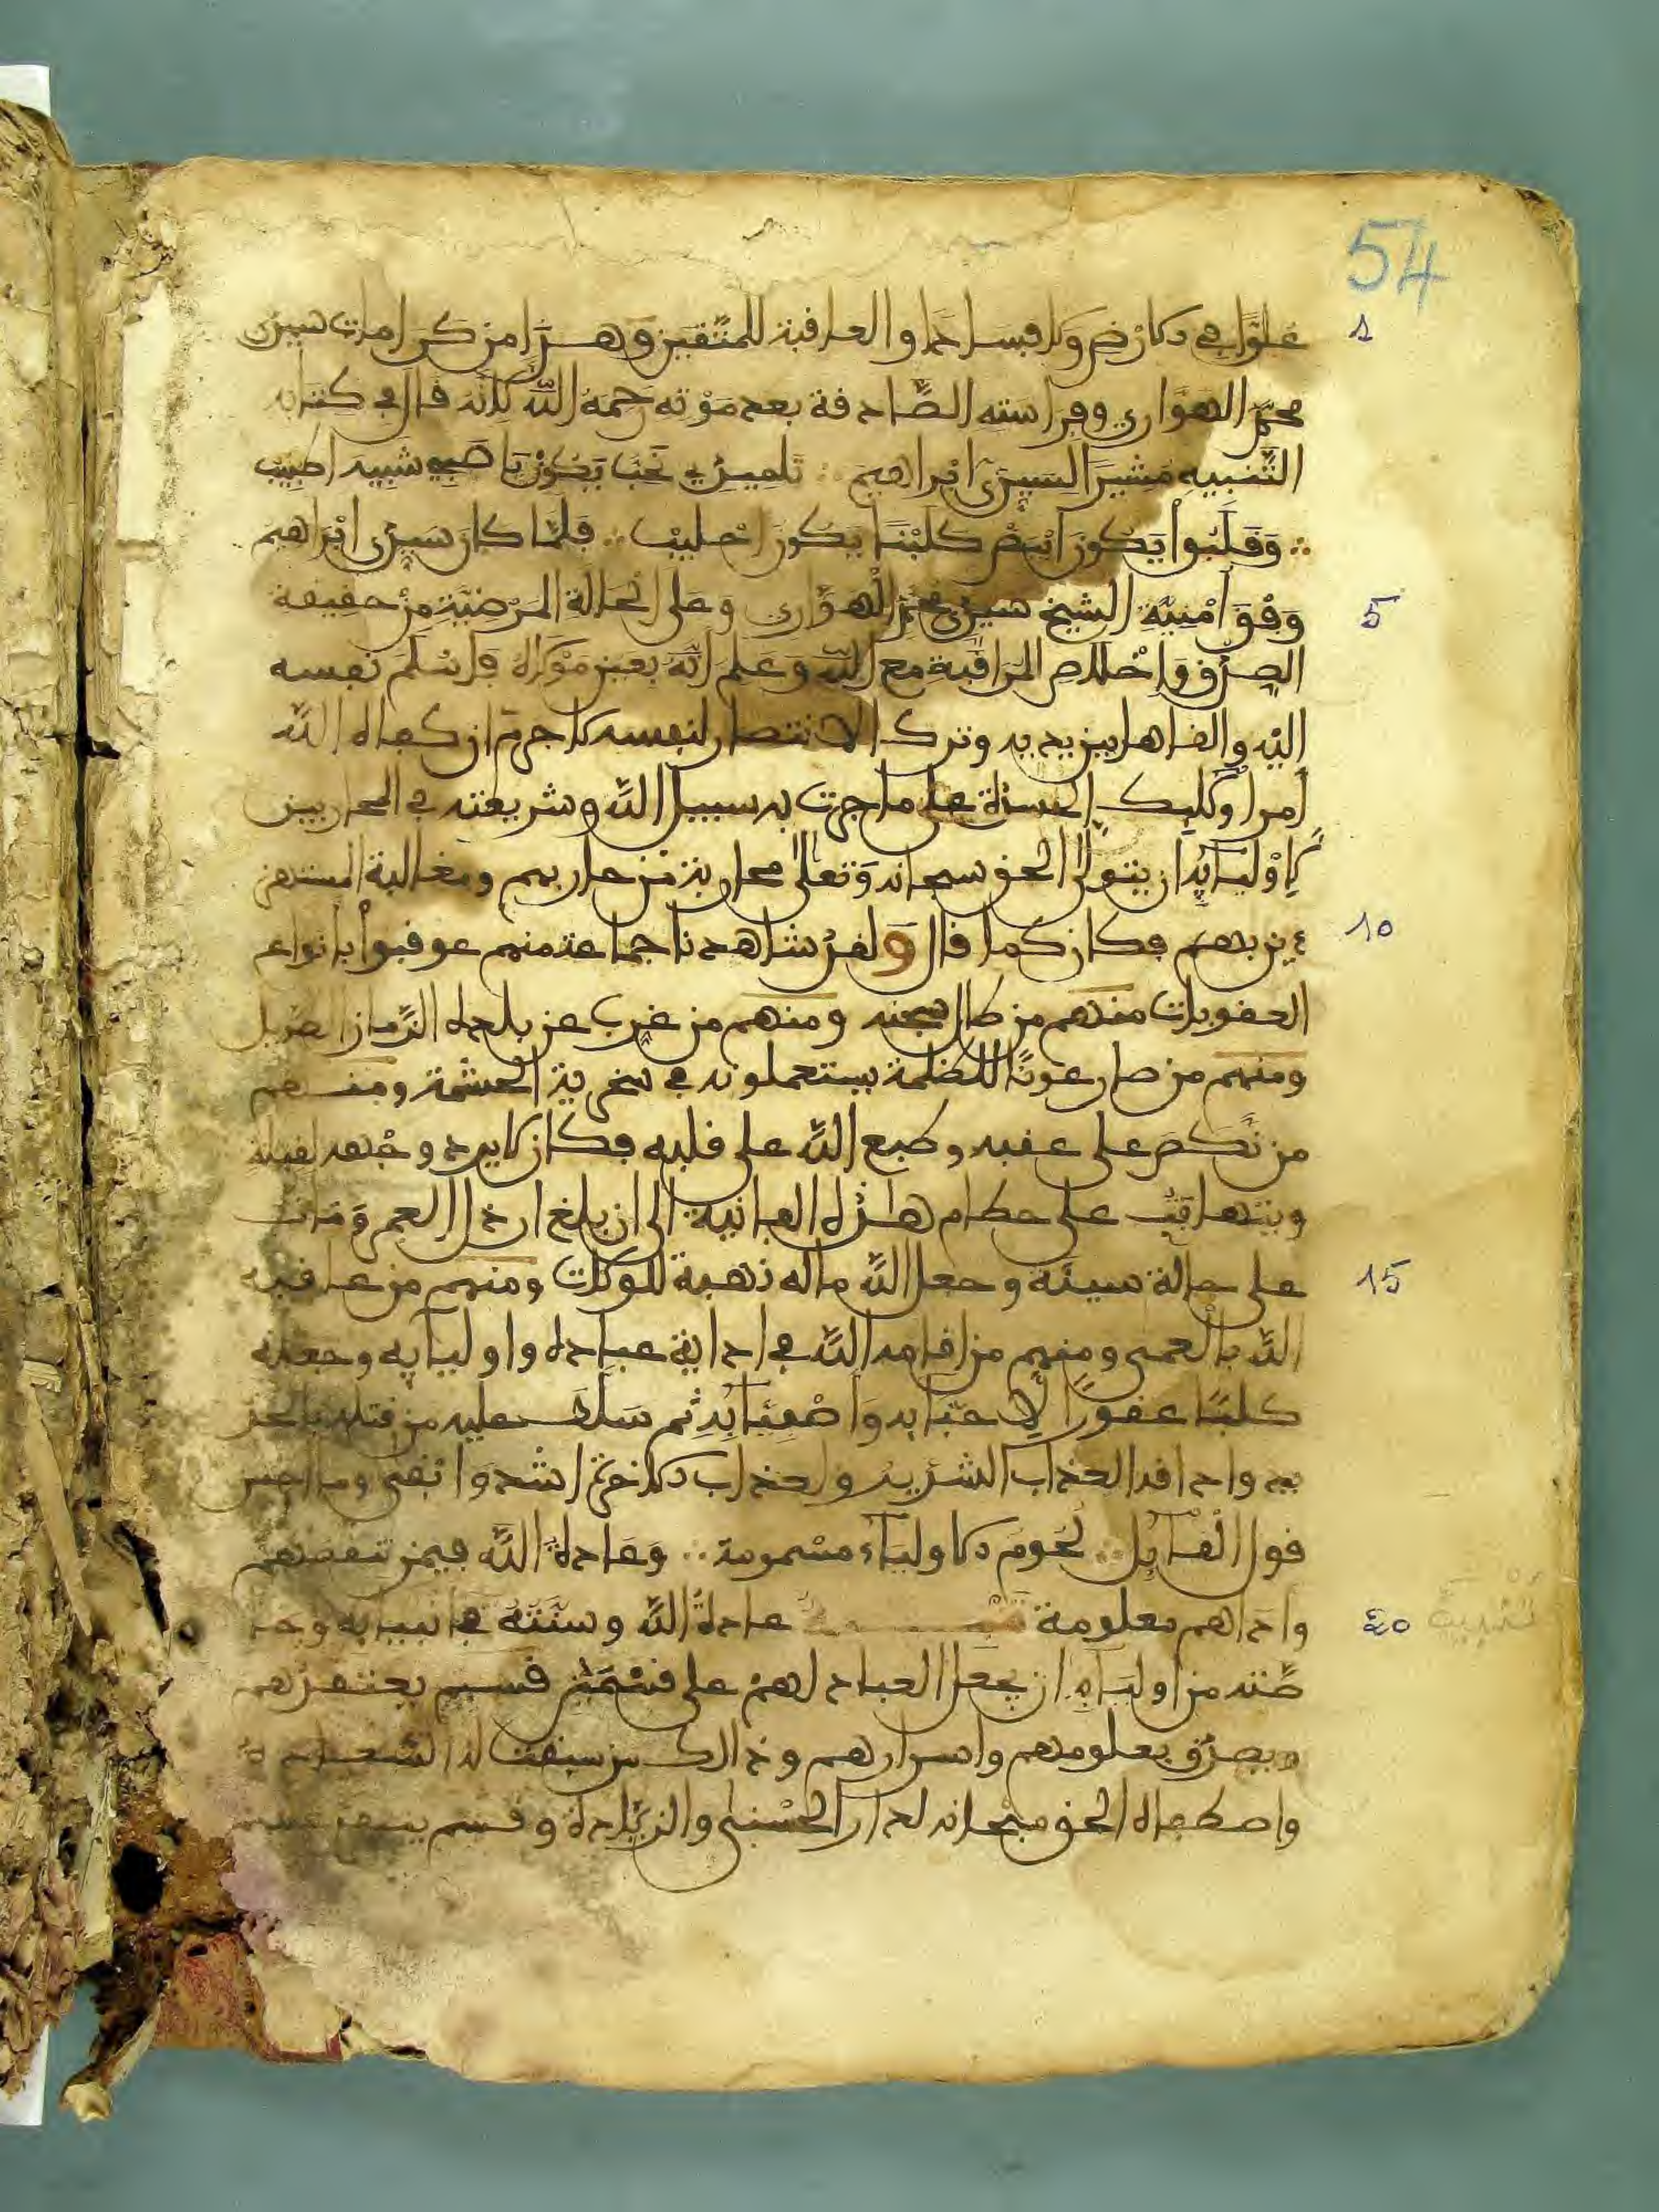 54
1 علوا في الارض ولا فسادا والعاقبة للمتقين وهذا من كرامات سيدي
محمد الهواري وفراسته الصادفة بعد موته رحمه الله لانه قال في كتابه
التنبيه مشيرا لسيدي ابراهيم ∴ تلميذي نحب يكون يا صبي شبيه اطبيب
∴ وقلبوا يكون ابيض كلبنا يكون احليب ∴ فلما كان سيدي ابراهيم
5 وفق امنية الشيخ سيدي محمد الهواري وعلى الحالة المرضية من حقيقة
الصدق واخلاص المراقبة مع الله وعلم انه بعين مولاه فاسلم نفسه
اليه والقاها بين يديه وترك الانتصار لنفسه لا جرم ان كفاه الله
امر اوليك الحسدة على ما جرت به سبيل الله وشريعته في المحاربين
لاوليائه ان يتولى الحق سبحانه وتعالى محاربة من حاربهم ومغالبة المستهز
10 ءين بهم فكان كما قال ولقد شاهدنا جماعة منهم عوقبوا بانواع
العقوبات منهم من طال سجنه ومنهم من غرب عن بلده الزمان الطويل
ومنهم من صار عونا للظلمة يستعملونه في سخرية الحشمة ومنهم
من نكص على عقبه وطبع الله على قلبه فكان لا يرد وجهه لقبلة
ويتهافت على حطام هذه الفانية الى ان بلغ ارذل العمر ومات
15 على حالة سيئة وجعل الله ماله نهبة للولات ومنهم من عاقبه
الله بالعمى ومنهم من اقامه الله في اداية عباده واوليايه وجعله
كلبا عقورا لاحبابه واصفيائه ثم سلط عليه من قتله بالحد
يد واذاقه العذاب الشديد ولعذاب الاخرة اشد وابقى وما احسن
قول القايل ∴ لحوم الاولياء مسمومة ∴ وعادة الله فيمن تنقصهم
واذاهم معلومة تنبيه عادة الله وسنته في انبيايه وخا
20 تنبيه
صته من اوليايه ان يجعل العباد لهم على قسمين قسم يعتقدهم
ويصدق بعلومهم واسرارهم وذالك من سبقت له السعادة
واصطفاه الحق سبحانه لدار الحسنى والزيادة وقسم ينتقد عليهم